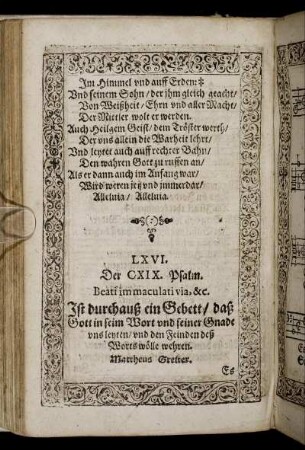 Im Himmel vnd auff Erden:
Vnd seinem Sohn / der ihm gleich geacht /
Von Weißheit / Ehrn vnd aller Macht /
Der Mitler wolt er werden.
Auch Heilgem Geist / dem Tröster werth /
Der vns allein die Warheit lehrt /
Vnd leytet auch auff rechter Bahn /
Den wahren Gott zu ruffen an /
Als er dann auch im Anfang war /
Wird weren jetz vnd immerdar /
Alleluia / Alleluia.
LXVI.
Der CXIX. Psalm.
Beati immaculati via, &c.
Ist durchauß ein Gebett / daß
Gott in seim Wort vnd seiner Gnade
vns leyten / vnd den Feinden deß
Worts wölle wehren.
Mattheus Greiter.
Es